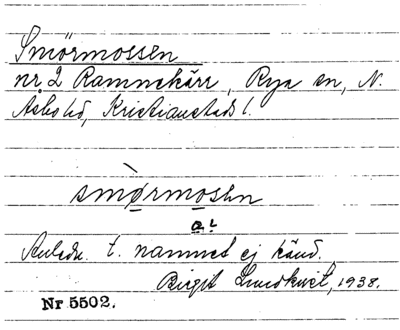 Smörmossen
nr 2 Ramnekärr, Rya sn, N.
Åsbo hd, Kristianstads l.
smö̀rmosen
a?
Anledn. t. namnet ej känd.
Birgit Lundkvist, 1938.
Nr 5502.